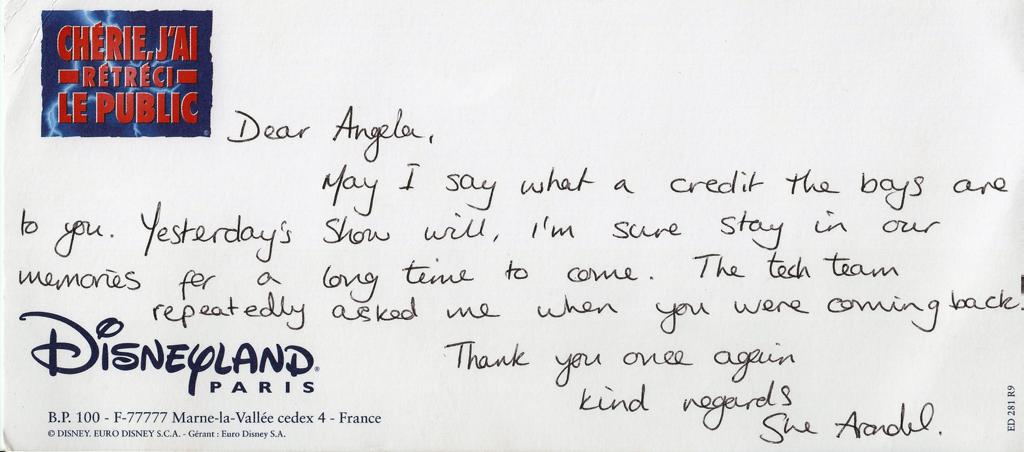 CHÉRIE, J'AI
RÉTRÉCI
LE PUBLIC
Dear Angela,
May I say what a credit the boys are
to you. Yesterday's Show will, I'm sure stay in our
memories for a long time to come. The tech team
repeatedly asked me when you were coming back!
Thank you once again
kind regards
Sue Arondel.
DISNEYLAND®
PARIS
B.P. 100 - F-77777 Marne-la-Vallée cedex 4 - France
© DISNEY. EURO DISNEY S.C.A. - Gérant : Euro Disney S.A.
ED 281 R9